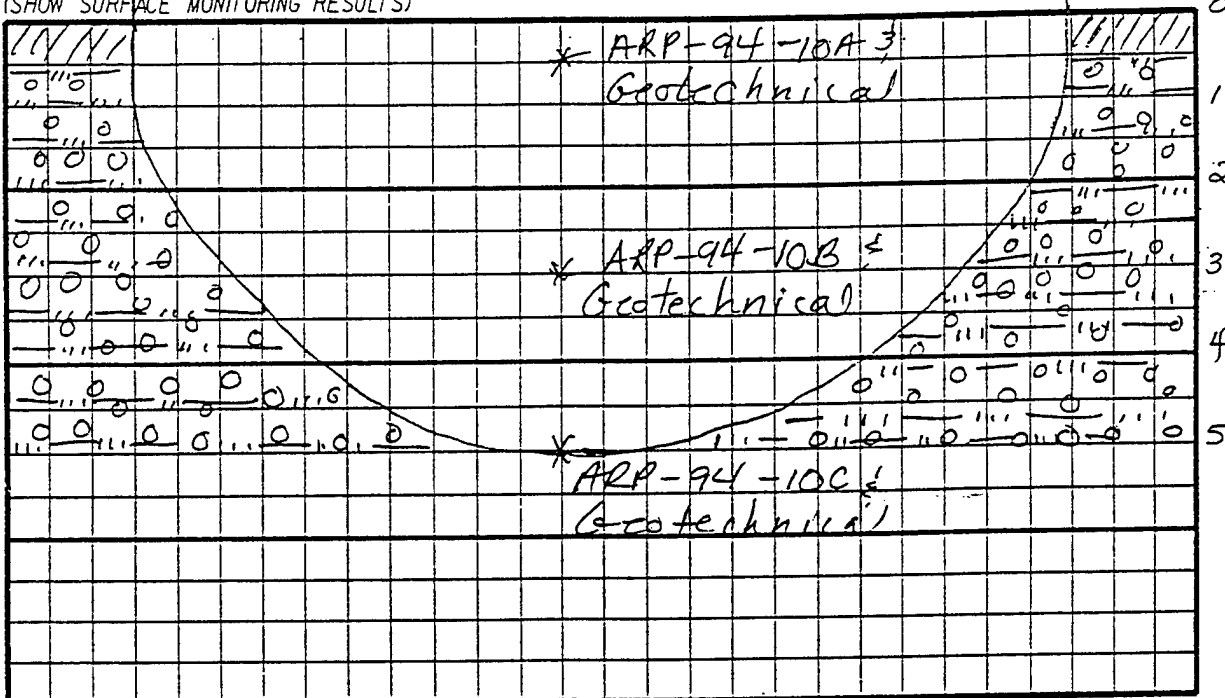 (SHOW SURFACE MONITORING RESULTS)
ARP-94-10A &
Geotechnical
1
2
ARP-94-10B &
Geotechnical
3
4
5
ARP-94-10C &
Geotechnical